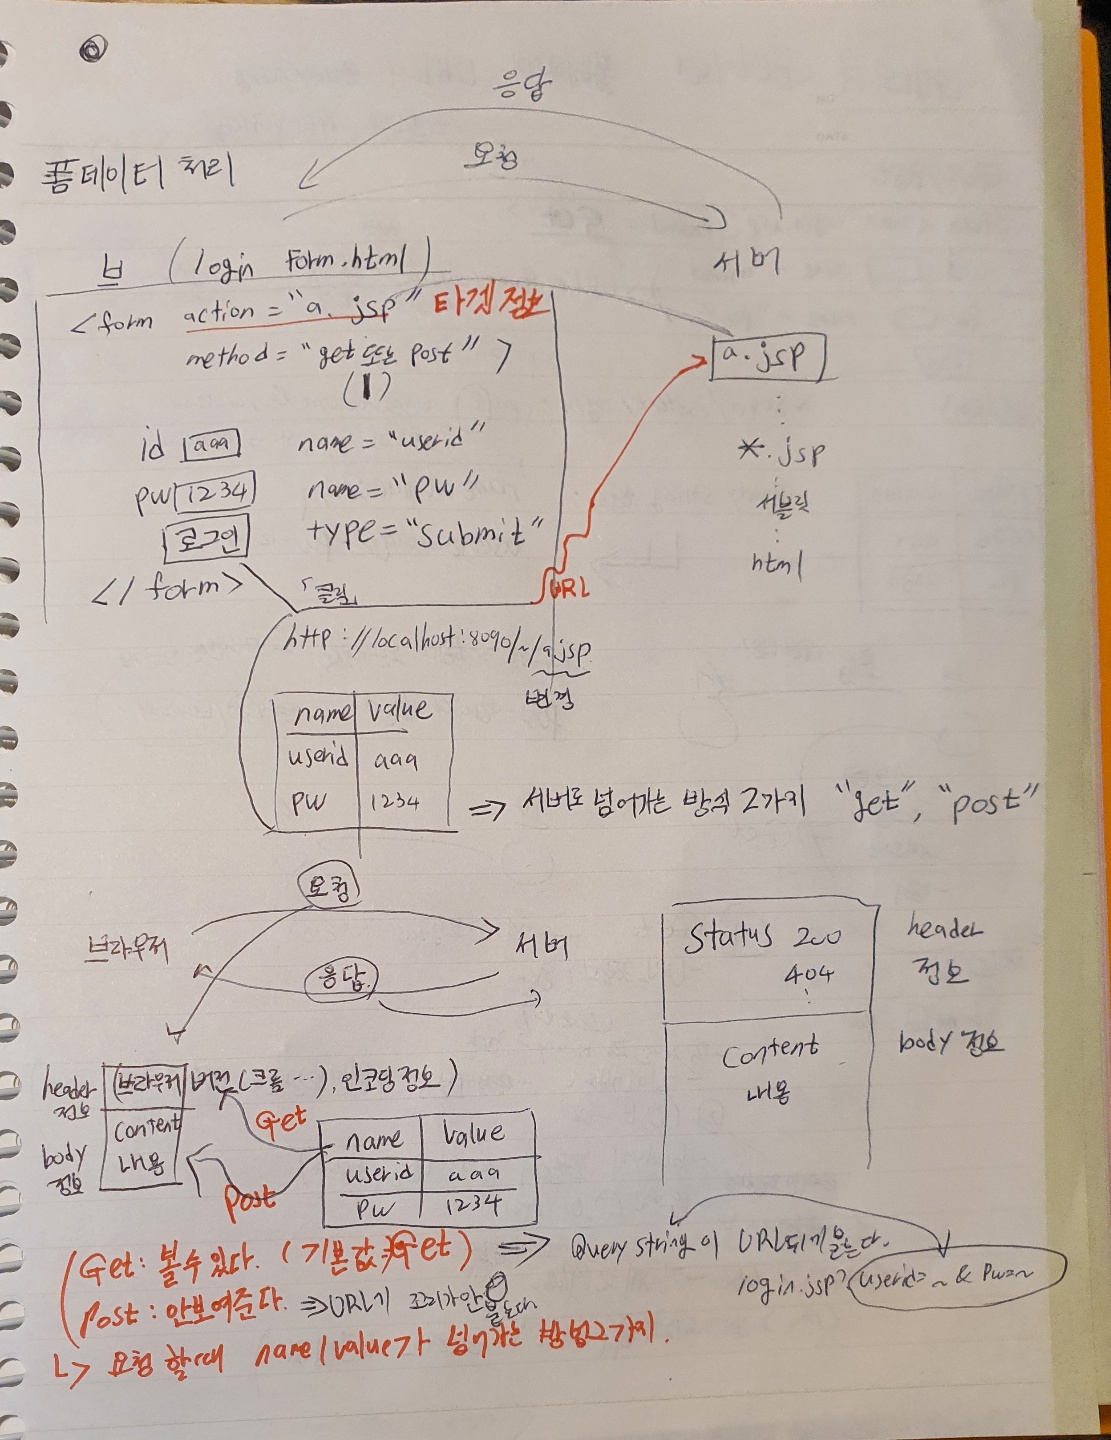 응답
요청
폼데이터 처리
브 (login Form.html)
서버
<form action="a.jsp" 타겟정보
method="get 또는 post">
(1)
a.jsp
id aaa name="userid"
*.jsp
pw 1234 name="pw"
서블릿
로그인 type="submit"
html
</form>
「클릭」
URL
http://localhost:8090/~/a.jsp
변경
name value
userid aaa
pw 1234
=> 서버로 넘어가는 방식 2가지 "get", "post"
요청
브라우저
서버
응답
Status 200
404
header
정보
Content
내용
body 정보
header
정보
(브라우저 버전(크롬 ...), 인코딩정보)
Content
내용
body
정보
Get
Post
name value
userid aaa
pw 1234
Get: 볼 수 있다. (기본값 Get) => Query string이 URL뒤에 붙는다.
login.jsp?userid=~&pw=~
Post: 안보여준다. => URL에 꼬리가 안 붙는다
ㄴ> 요청 할때 name/value가 넘어가는 방법 2가지.